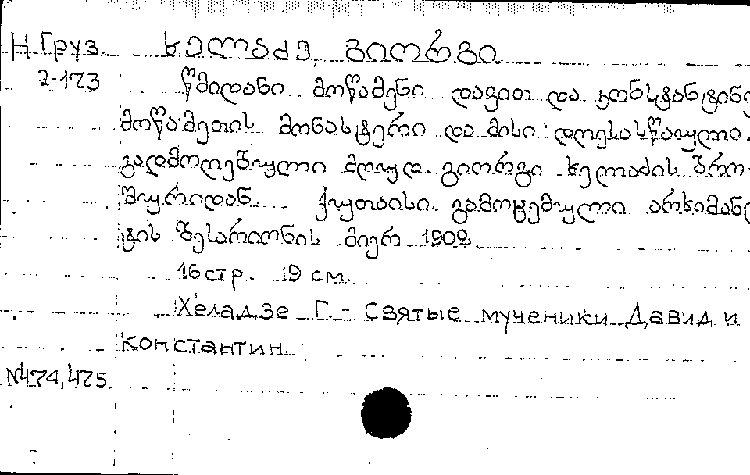 Н.Груз. ხელაძე, გიორგი
2-173 წმიდანი მოწამენი დავით და კონსტანტინე
მოწამეთის მონასტერი და მისი დღესასწაული.
გადმოღებული მღვდ. გიორგი ხელაძის ბრო-
შურიდან. ქუთაისი. გამოცემული არხიმანდ
ტის ბესარიონის მიერ 1909
16 стр. 19 см.
Хеладзе Г. - Святые мученики Давид и
Константин
№474,475